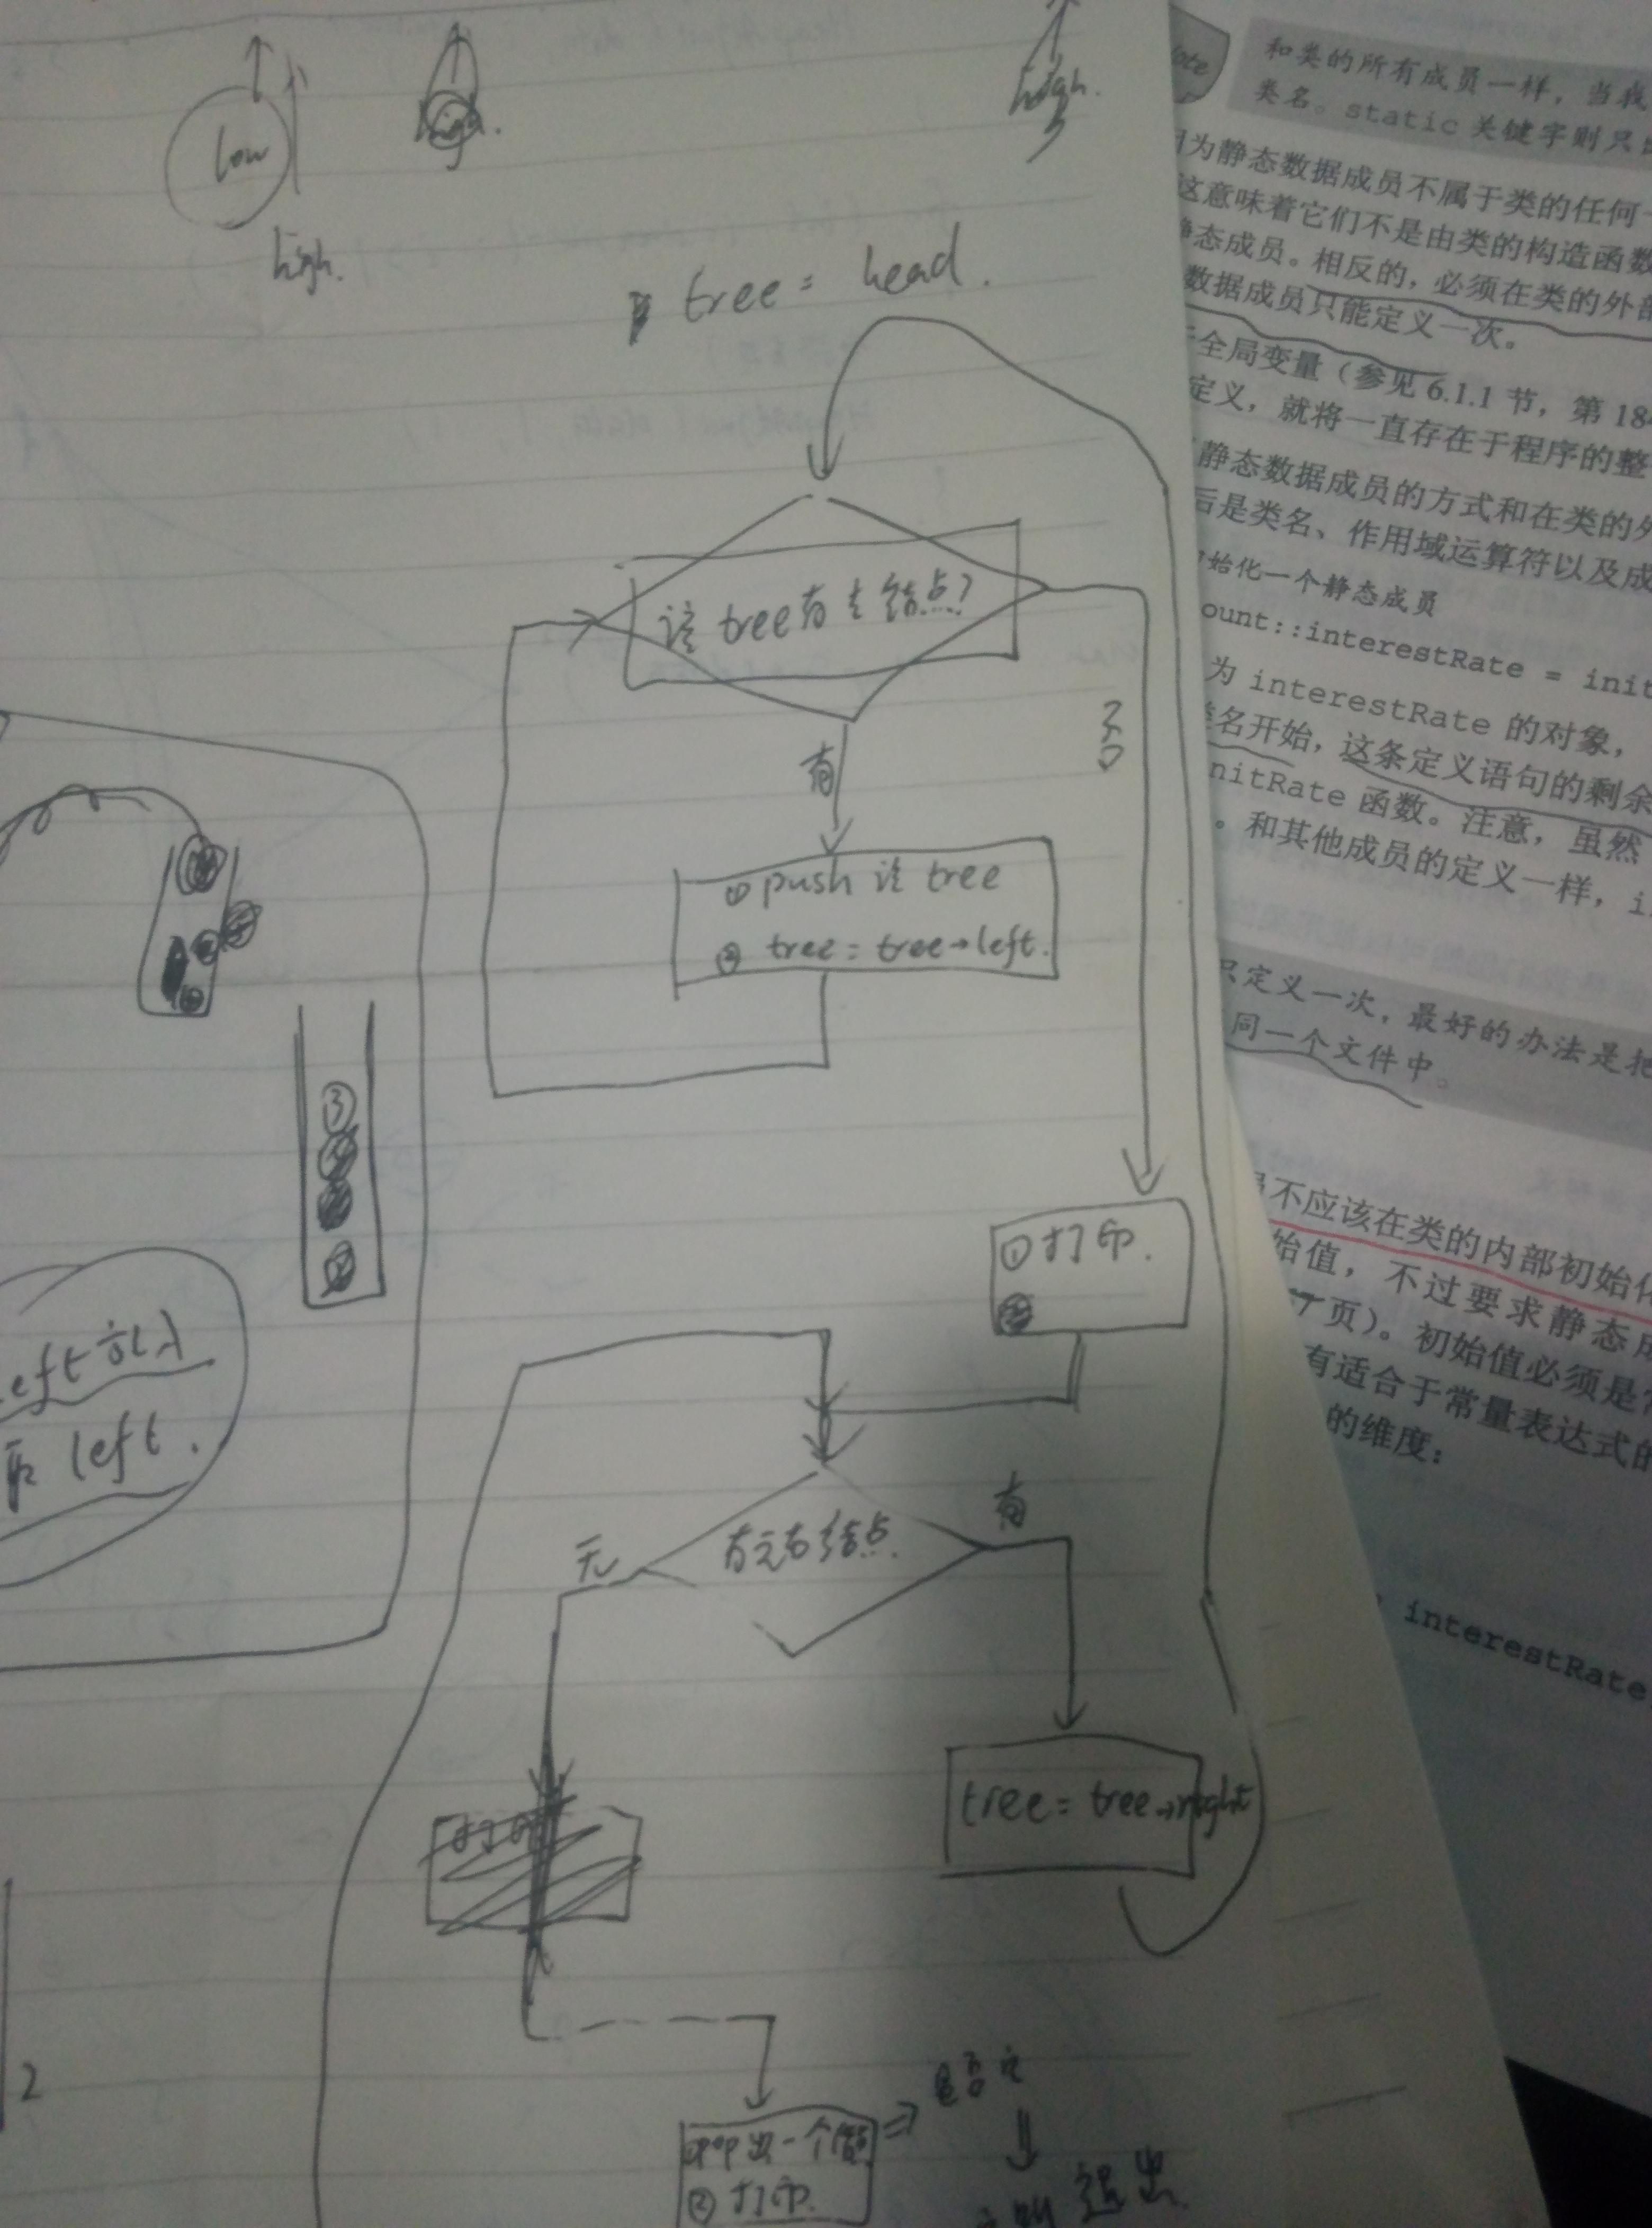 low
high.
high.
tree = head.
该tree有左结点?
有
否
①push 该 tree
② tree = tree→left.
③
①打印.
left
left.
有无右结点.
无
有
tree = tree→right
2
①pop出一个
②打印.
是否
退出.
和类的所有成员一样，当我
类名。static 关键字则只
为静态数据成员不属于类的任何
这意味着它们不是由类的构造函数
静态成员。相反的，必须在类的外部
数据成员只能定义一次。
全局变量（参见 6.1.1 节，第 184
定义，就将一直存在于程序的整
静态数据成员的方式和在类的外
后是类名、作用域运算符以及成
始化一个静态成员
ount::interestRate = init
为 interestRate 的对象，
类名开始，这条定义语句的剩余
nitRate 函数。注意，虽然
。和其他成员的定义一样，i
只定义一次，最好的办法是把
同一个文件中。
不应该在类的内部初始化
始值，不过要求静态成
页）。初始值必须是常
有适合于常量表达式的
的维度：
interestRate